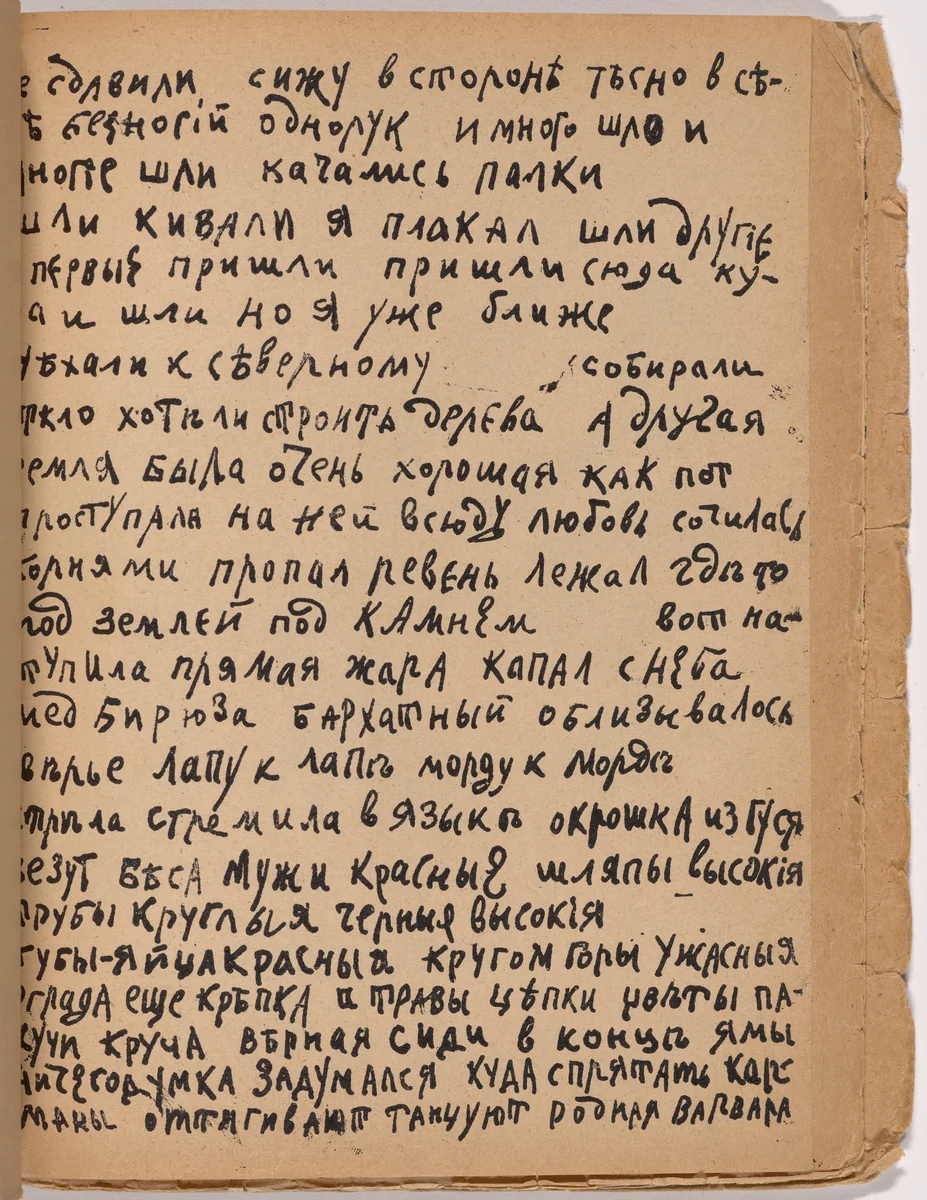 сдавили сижу в сторонѣ тѣсно в сѣ-
безногій однорук и много шло и
шли качались палки
шли кивали я плакал шли другіе
первые пришли пришли сюда ку-
а и шли но я уже ближе
уѣхали к сѣверному собирали
хотѣли строить дерева а другая
емля была очень хорошая как пот
проступала на ней всюду любовь сочилась
орнями пропал ревень лежал гдѣ то
под землей под камнем вот на-
тупила прямая жара капал с неба
мед бирюза бархатный облизывалось
вѣрье лапу к лапѣ морду к мордѣ
стрѣла стремила в языкѣ окрошка из гуся
везут бѣса мужи красные шляпы высокія
трубы круглыя черныя высокія
губы-яйца красныя кругом горы ужасныя
ограда еще крѣпка и травы цѣпки цвѣты па-
хучи круча вѣрная сиди в концѣ ямы
задумался куда спрятать кар-
маны оттягивают танцуют родная варвара